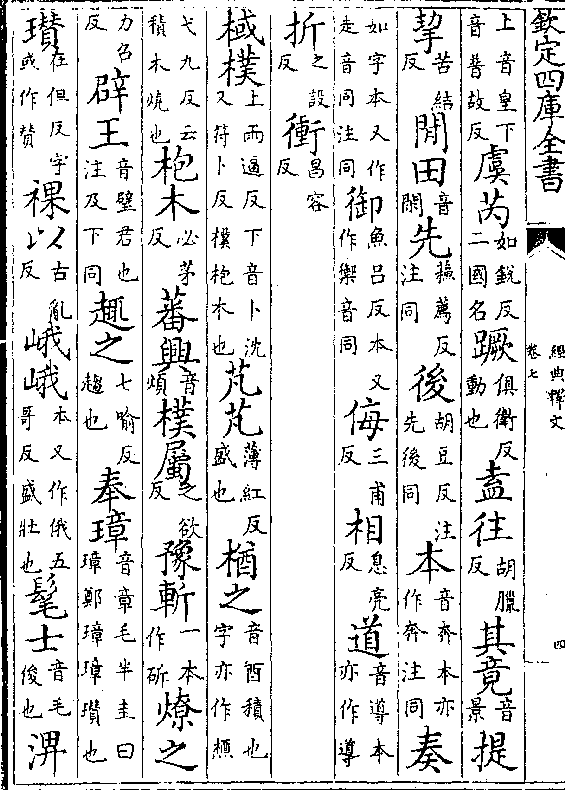 欽定四庫全書
經典釋文
卷七
四
上音皇下音普故反虞芮如銳反二國名蹶俱衛反動也盍往胡臘反其竟音景提
挈苦結反閒田音閑先蘓薦反注同後胡豆反注先後同本音奔本亦作奔注同奏
如字本又作走音同注同御魚呂反本又作禦音同侮三甫反相息亮反道音導本亦作導
折之設反衝昌容反
棫樸上而逼反下音卜沈又符卜反樸枹木也芃芃薄紅反盛也楢之音酉積也字亦作槱
弋九反云積木燒也枹木必茅反蕃興音煩樸屬之欲反豫斬一本作斫燎之
力召反辟王音璧君也注及下同趣之七喻反趨也奉璋音章毛半圭曰璋鄭璋璋瓚也
瓚在但反字或作賛祼以古亂反峨峨本又作俄五哥反盛壯也髦士音毛俊也淠